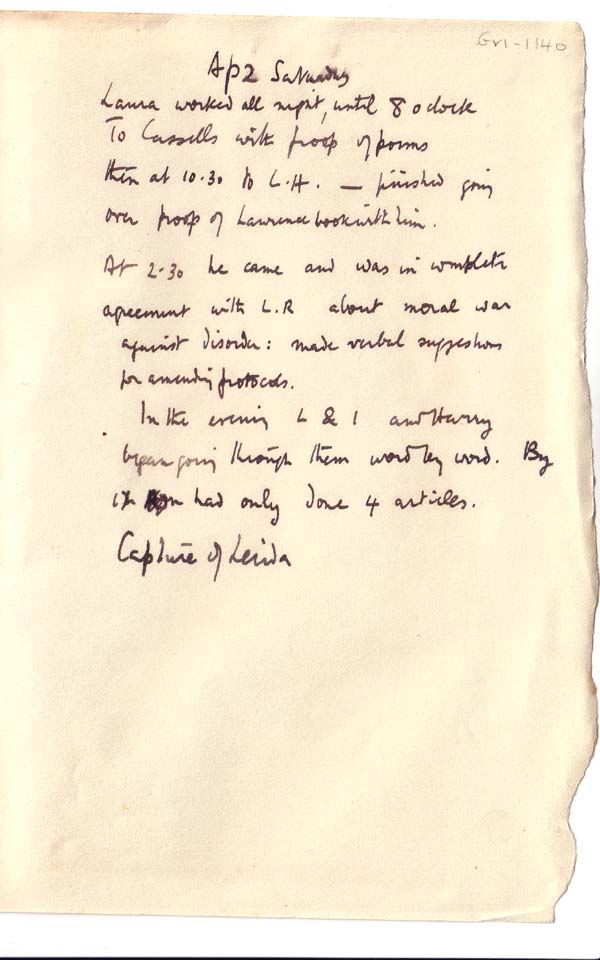 GV1-1140
Ap 2 Saturday
Laura worked all night, until 8 oclock
To Cassells with proof of poems
then at 10.30 to L.H. — finished going
over proof of Lawrence book with him.
At 2.30 he came and was in complete
agreement with L.R about moral war
against disorder: made verbal suggestions
for amending protocols.
In the evening L & I and Harry
began going through them word by word. By
had only done 4 articles.
Capture of Lerida